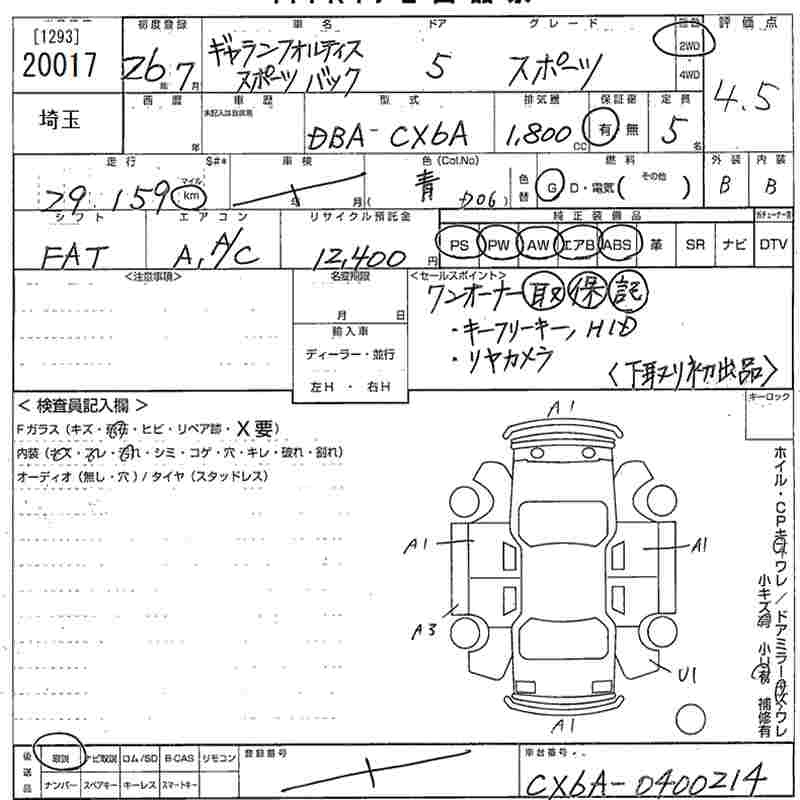 [1293]
20017
埼玉
初度登録
26年7月
車名
ギャランフォルティス
スポーツバック
ドア
5
グレード
スポーツ
2WD
4WD
評価点
4.5
西暦
年
車歴
型式
DBA-CX6A
排気量
1,800 CC
保証書
有 無
定員
5名
走行
29,159
マイル
km
S#*
車検
年 月(
色(Col.No)
青
D06)
色替
燃料
G・D・電気( その他 )
外装
B
内装
B
シフト
FAT
エアコン
A,A/C
リサイクル預託金
12,400円
純正装備品
PS PW AW エアB ABS 革 SR ナビ DTV
<注意事項>
名変期限
月 日
輸入車
ディーラー・並行
左H ・ 右H
<セールスポイント>
ワンオーナー 取 保 記
・キーフリーキー, HID
・リヤカメラ
<下取り初出品>
<検査員記入欄>
Fガラス(キズ・飛石・ヒビ・リペア跡・X要)
内装(キズ・スレ・汚れ・シミ・コゲ・穴・キレ・破れ・割れ)
オーディオ(無し・穴)/タイヤ(スタッドレス)
キーロック
A1
A1
A1
A3
U1
A1
ホイル・CPキズワレ/ドアミラーキズワレ
小キズ有 小U有 補修有
後送品
取説 ナビ取説 ロム/SD B-CAS リモコン
ナンバー スペアキー キーレス スマートキー
登録番号
車台番号
CX6A-0400214